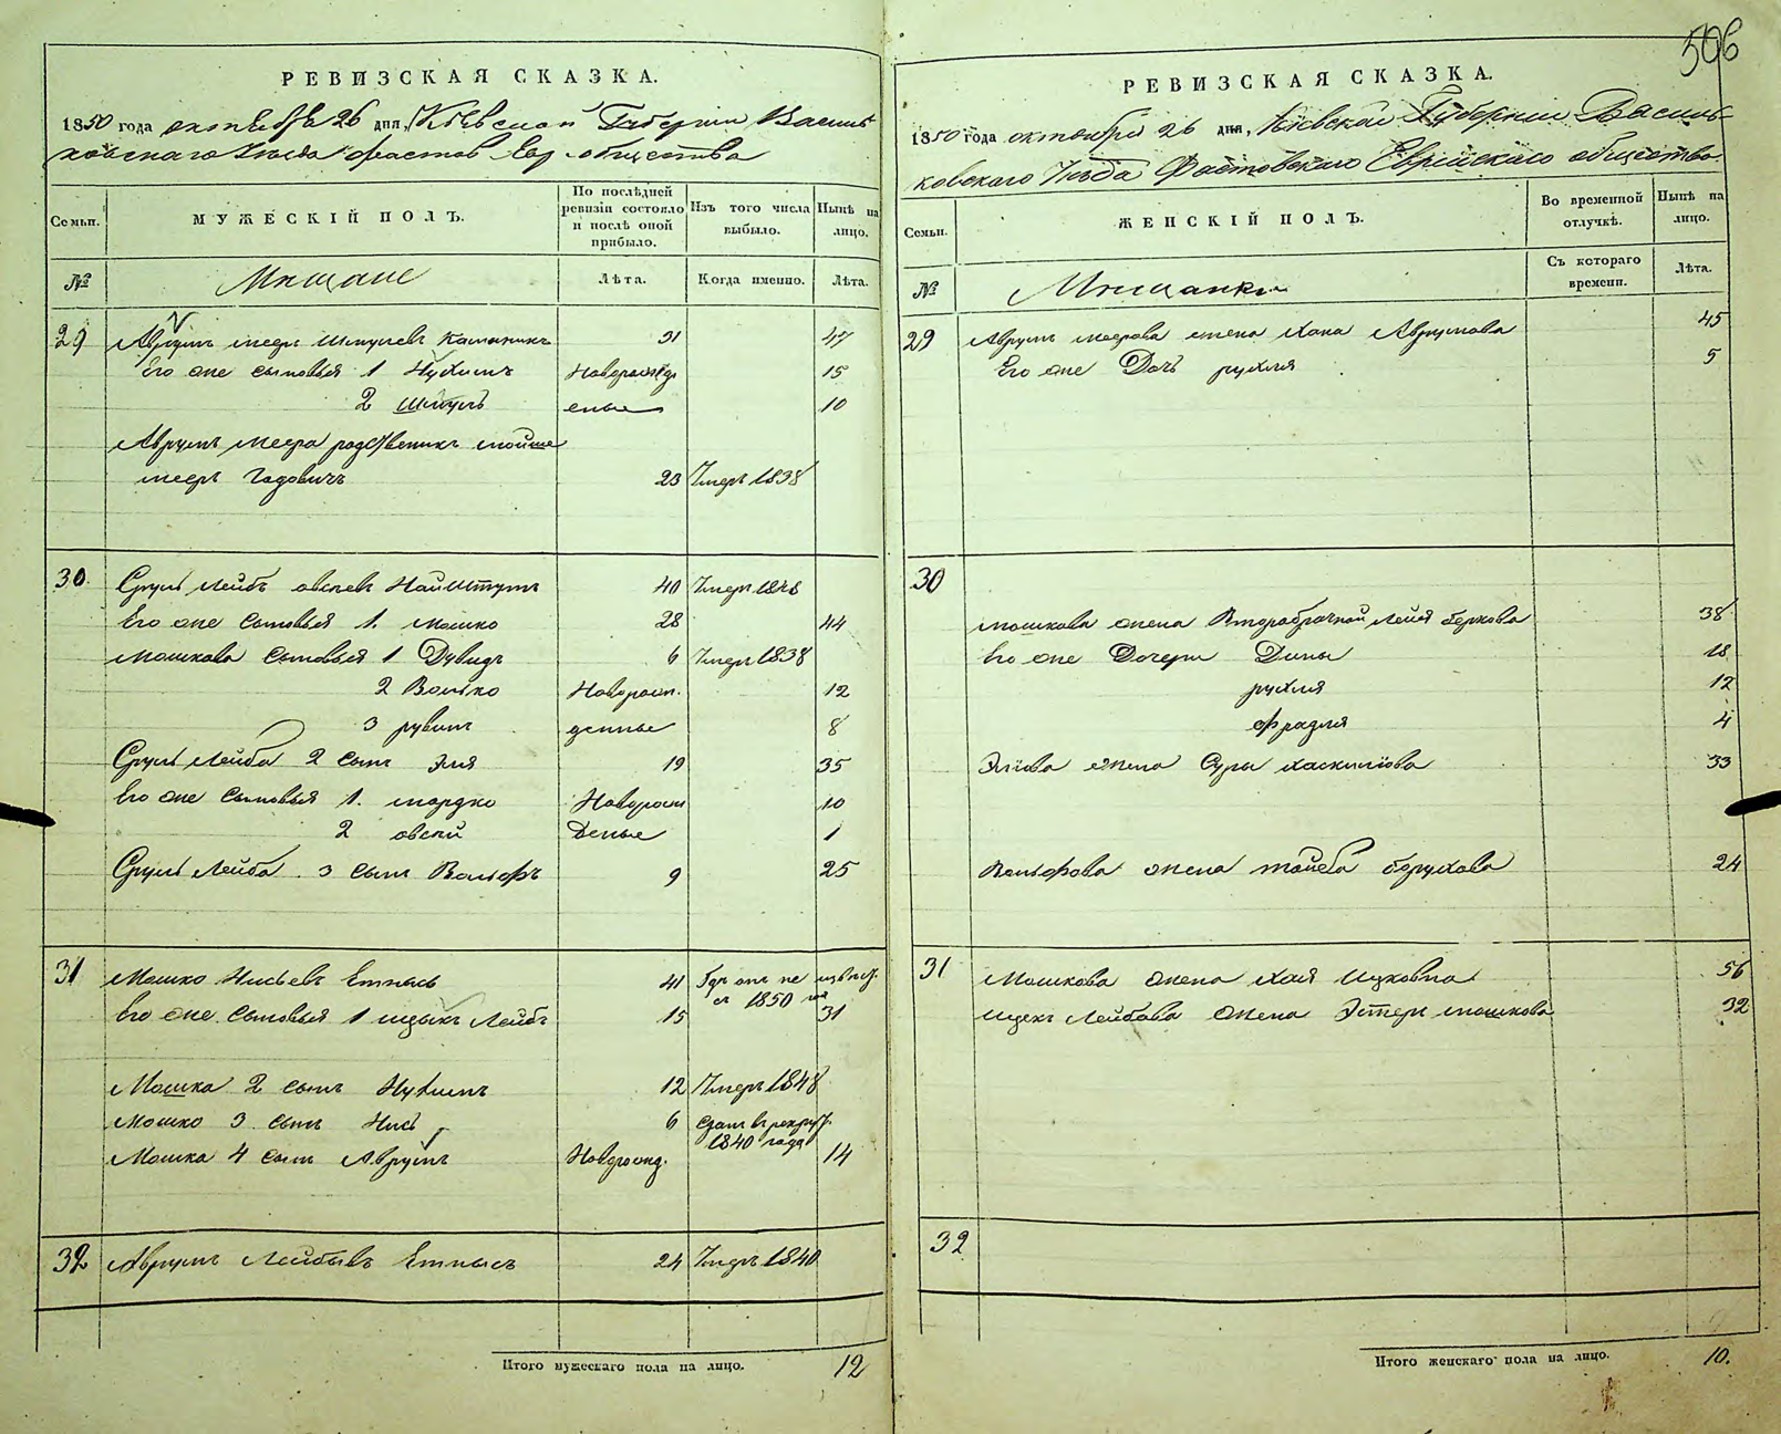 506
РЕВИЗСКАЯ СКАЗКА.
1850 года октября 26 дня, Кіевской Губерніи Василь-
ковскаго Уезда Фастов. Евр. общества
Семьи.
МУЖЕСКІЙ ПОЛЪ.
По послѣдней ревизіи состояло и послѣ оной прибыло.
Изъ того числа выбыло.
Нынѣ на лицо.
№
Мещане
Лѣта.
Когда именно.
Лѣта.
29 Аврумъ Меер Шмулевъ 31 47
Его же сыновья 1 Нухимъ Новорожд 15
2 Шмуль енные 10
Аврумъ Меера родственикъ Мойше
Меер Гадовичъ 23 Умеръ 1838
30. Сруль Лейбъ овсіевъ Найштутъ 40 Умеръ 1848
Его же Сыновья 1. мошко 28 44
Мошкова Сыновья 1 Дувидъ 6 Умеръ 1838
2 Волько Новорож. 12
3 рувинъ денные 8
Сруль Лейба 2 Сынъ Эля 19 35
Его же Сыновья 1. мордко Новорож 10
2 овсей денные 1
Сруль Лейба. 3 Сынъ Вольфъ 9 25
31 Мошко Нисьевъ 41 Где онъ не извѣст.
съ 1850 год
Его же. Сыновья 1 ицыкъ Лейбъ 15 31
Мошка 2 Сынъ Нухимъ 12 Умеръ 1848
Мошко 3. Сынъ Нись 6 Сданъ в рекрут.
1840 года
Мошка 4 Сынъ Аврумъ Новорожд. 14
32 Аврумъ Лейбовъ 24 Умеръ 1840
Итого мужескаго пола на лицо. 12
РЕВИЗСКАЯ СКАЗКА.
1850 года октября 26 дня, Кіевской Губерніи Василь-
ковскаго Уѣзда Фастовскаго Еврейскаго общества.
Семьи.
ЖЕНСКІЙ ПОЛЪ.
Во временной отлучкѣ.
Нынѣ на лицо.
№
Мещанки
Съ котораго времени.
Лѣта.
29 Аврумъ Меерова жена Хана Аврумова 45
Его же Дочь рухля 5
30
Мошкова жена Второбрачной Лейя беркова 38
Его же Дочери Дины 18
рухля 12
фрадля 4
Эліова жена Суры Хаскиліова 33
Вольфова жена тойба борухова 24
31 Мошкова жена Хая Ицковна 56
ицекъ Лейбова жена Эстеръ мошкова 32
32
Итого женскаго пола на лицо. 10.